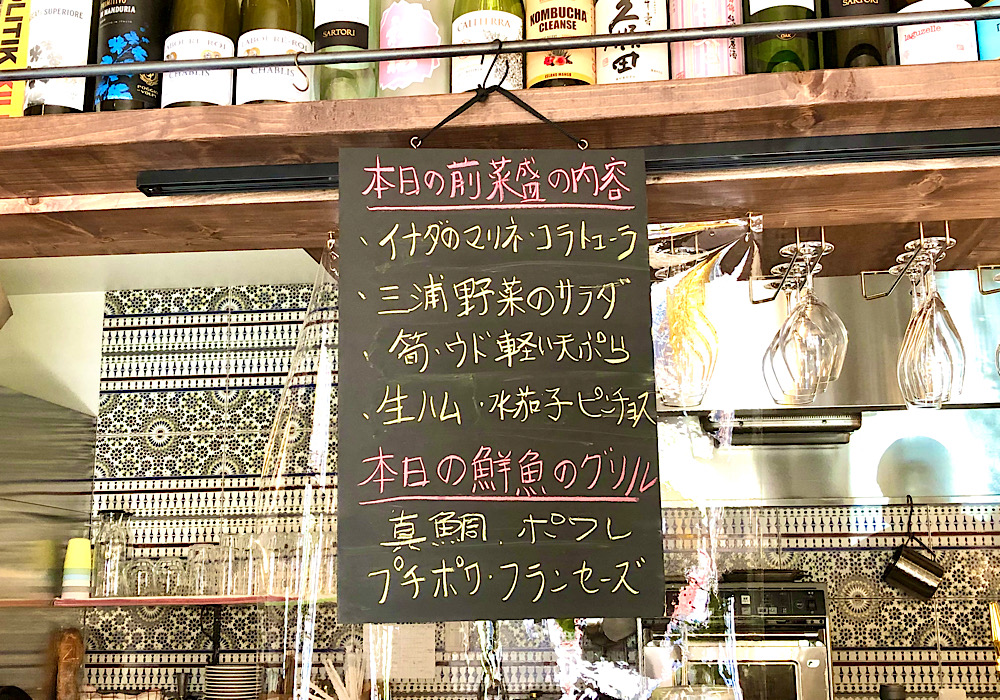 SUPERIORE
PRIMITIVO
MANDURIA
CHABLIS
CHABLIS
SARTORI
KOMBUCHA
CLEANSE
久保田
SARTORI
laguzelle
本日の前菜盛の内容
、イナダのマリネ・コラトューラ
、三浦野菜のサラダ
、筍・ウド軽い天ぷら
、生ハム・水茄子ピンチョス
本日の鮮魚のグリル
真鯛、ポワレ
プチポワ・フランセーズ